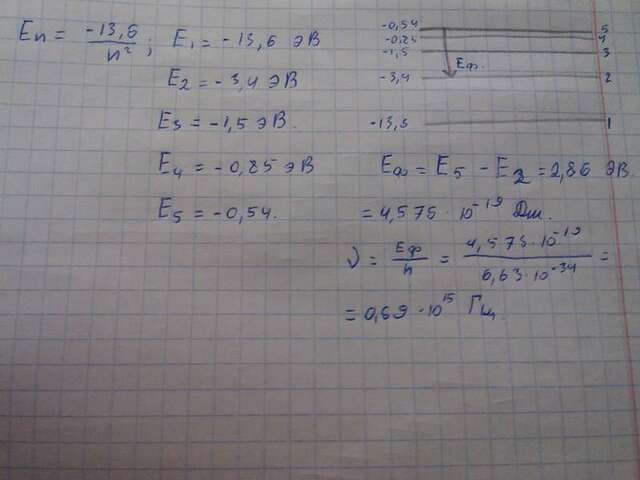 En = -13,6 / n² ; E1 = -13,6 эВ
E2 = -3,4 эВ
E3 = -1,5 эВ.
E4 = -0,85 эВ
E5 = -0,54.
-0,54 5
-0,85 4
-1,5 3
Eф.
-3,4 2
-13,6 1
Eф = E5 - E2 = 2,86 эВ.
= 4,575 · 10⁻¹⁹ Дж.
ν = Eф / h = 4,575·10⁻¹⁹ / 6,63·10⁻³⁴ =
= 0,69 · 10¹⁵ Гц.